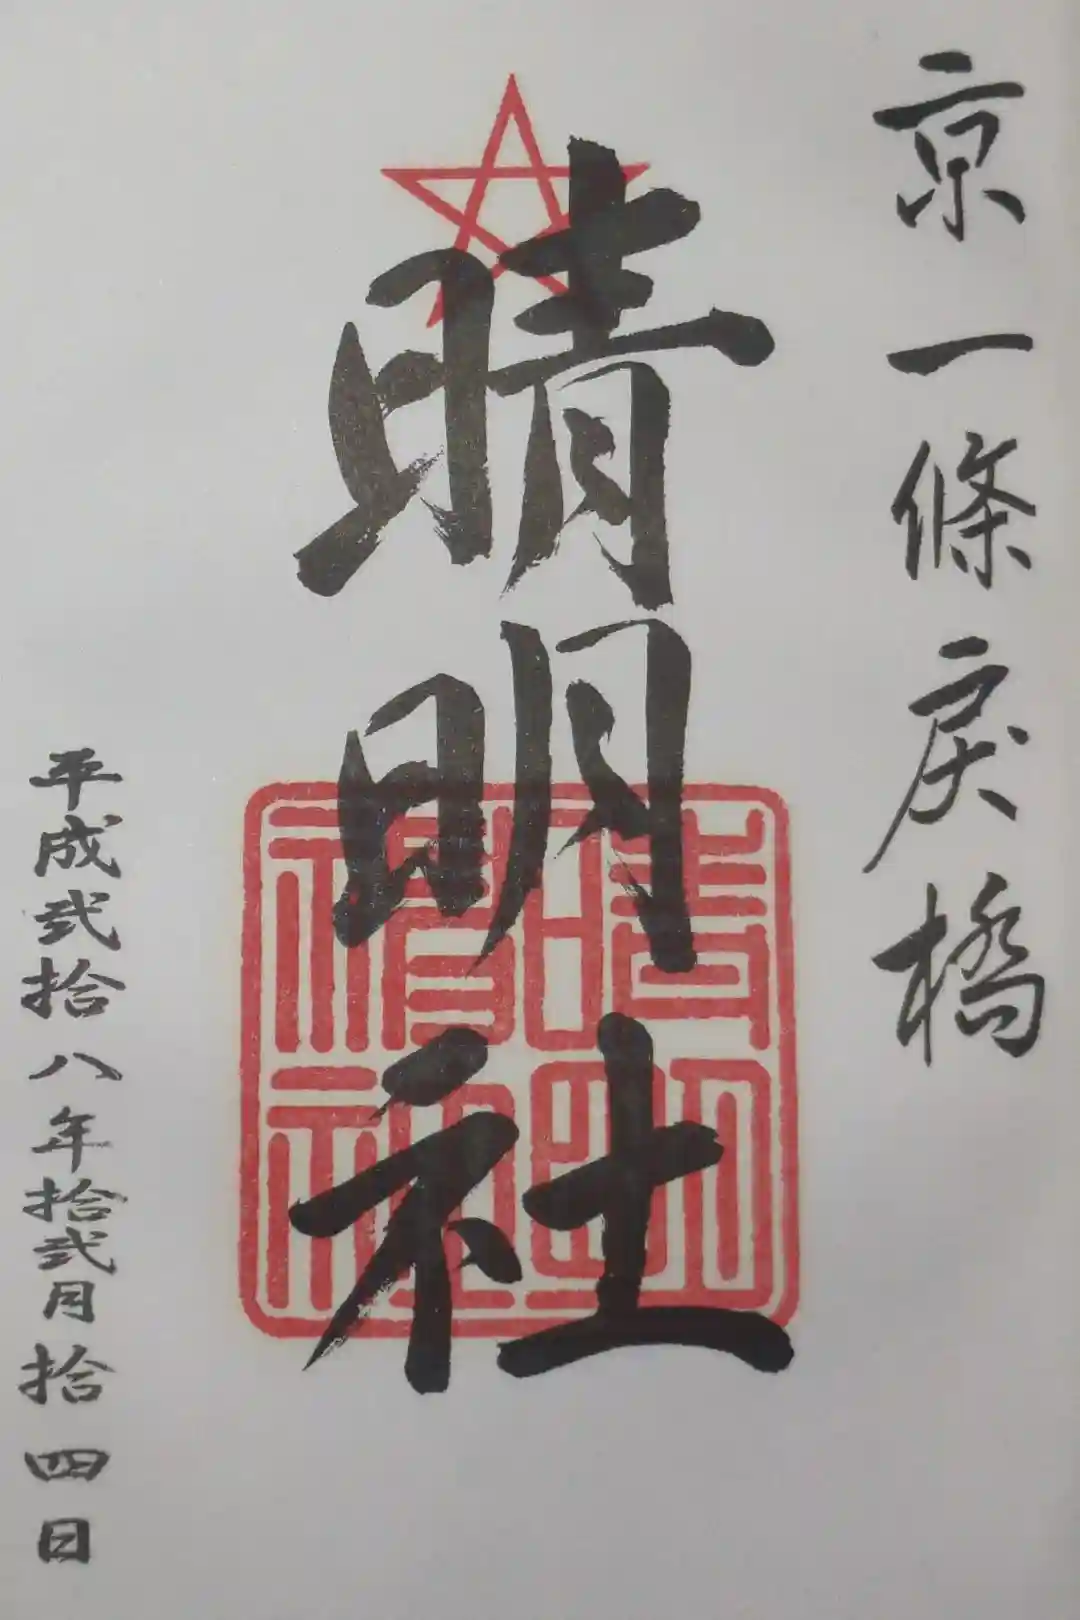 京一條戻橋
晴明社
晴明神社
平成弐拾八年拾弐月拾四日